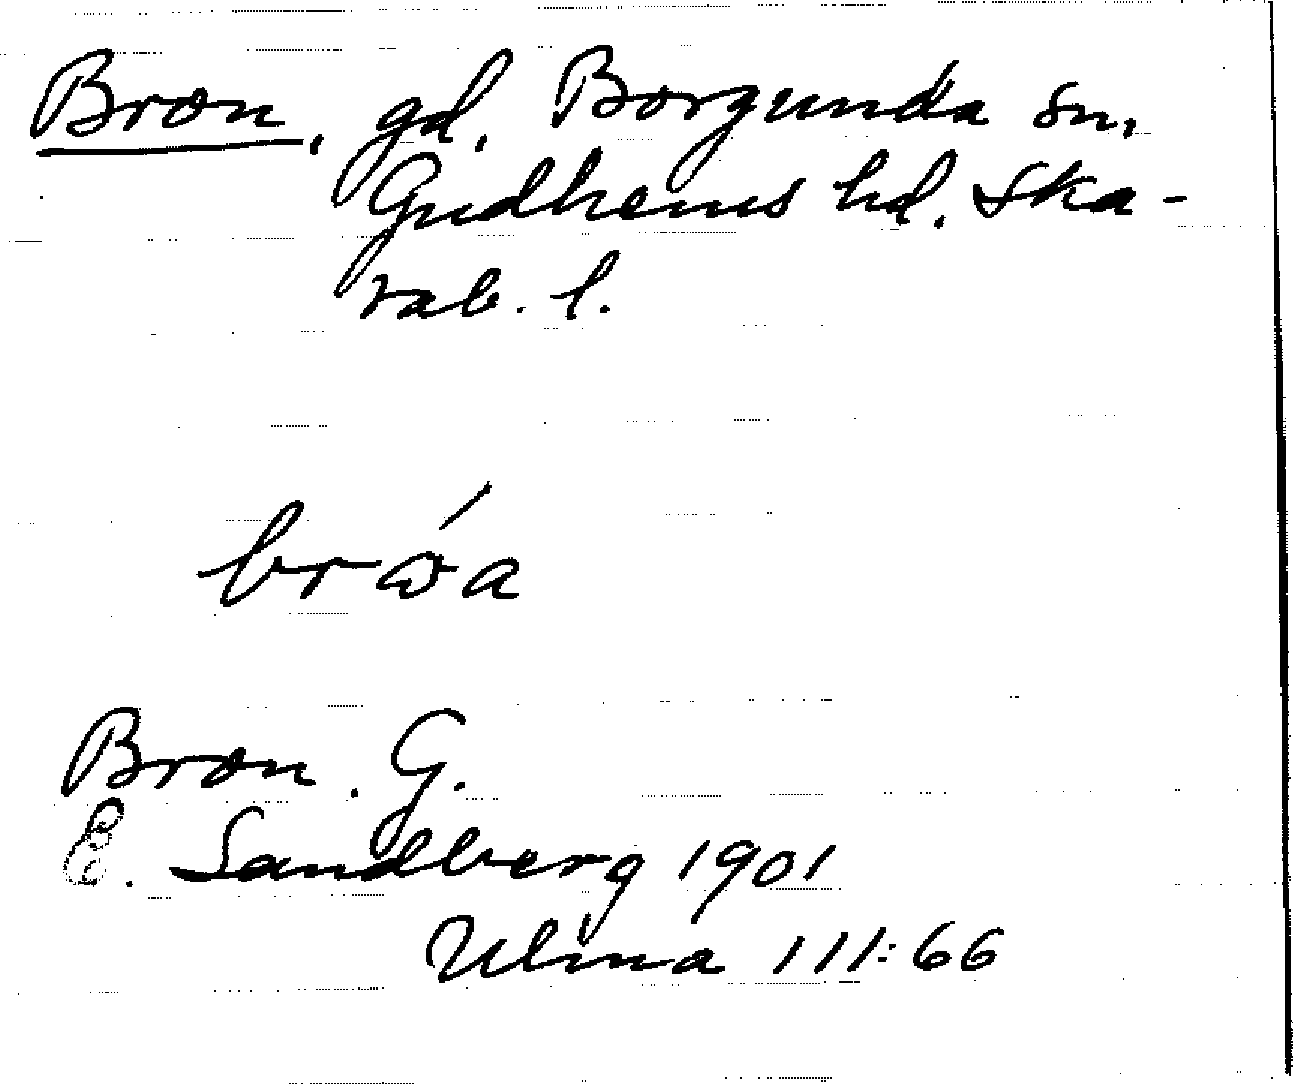 Bron, gd. Borgunda sn,
Gudhems hd. Ska-
rab. l.
Bron. G.
E. Sandberg 1901
Ulma 111:66